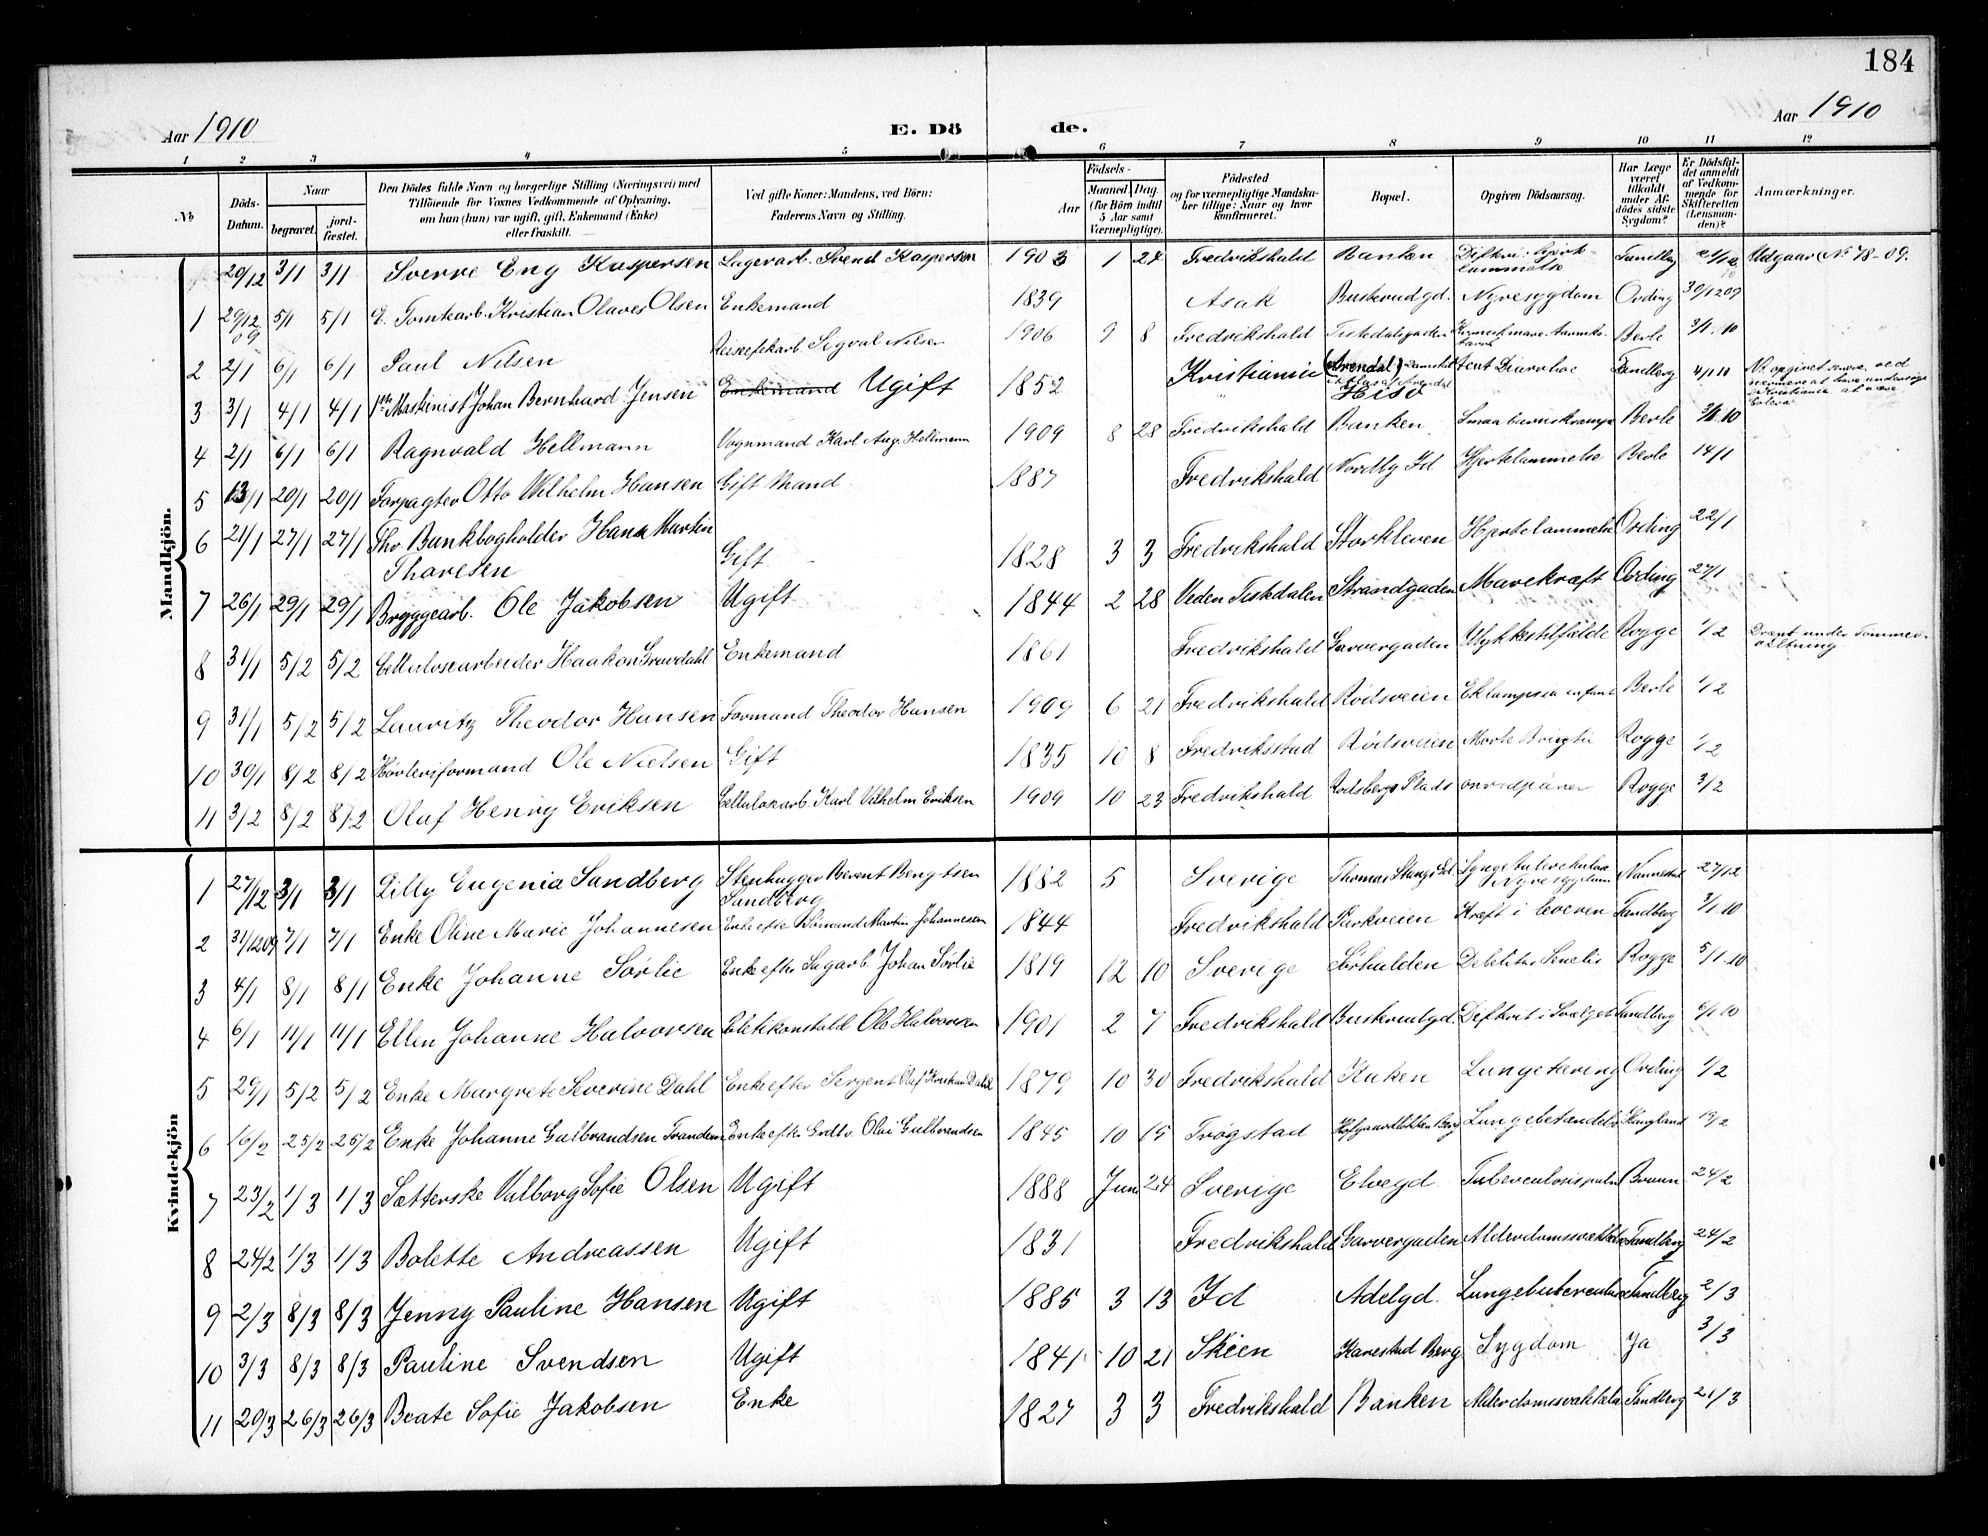 184
Aar 1910
E. Dö
de.
Aar 1910
1 2 3 4 5 6 7 8 9 10 11 12
No
Döds-
Datum.
Naar
begravet.
jord-
fæstet.
Den Dödes fulde Navn og borgerlige Stilling (Næringsvei) med
Tilföiende for Voxnes Vedkommende af Oplysning,
om han (hun) var ugift, gift, Enkemand (Enke)
eller fraskilt.
Ved gifte Koner: Mandens, ved Börn:
Faderens Navn og Stilling.
Födsels-
Aar
Maaned
(for Börn indtil
5 Aar samt
Værnepligtige).
Dag
Födested
og for værnepligtige Mandska-
ber tillige: Naar og hvor
konfirmeret.
Bopæl.
Opgiven Dödsaarsag.
Har Læge
været
tilkaldt
under Af-
dödes sidste
Sygdom?
Er Dödsfal-
det anmeldt
af Vedkom-
mende for
Skifteretten
(Lensman-
den)?
Anmærkninger.
Mandkjön.
29/12 3/1 3/1 Sverre Eng Kaspersen Lagerarb. Svend Kaspersen 1903 1 24 Fredrikshald Banken Difteri: Hjerte-
lammelse Tandberg Udgaar (No 78-09.
1 29/12 09 5/1 5/1 E. Tomtearb. Kristian Olaves Olsen Enkemand 1839 Asak Buskerudgd. Nyresygdom Ording 30/12 09
2 2/1 6/1 6/1 Paul Nilsen Sigval Nilsen 1906 9 8 Fredrikshald Tistedalsgaden Berle 3/1.10
3 3/1 4/1 4/1 1ste Maskinist Johan Bernhard Jensen Enkemand Ugift 1852 Kristiania (Arendal)
Hisö
Acut Diarrhoe Tandberg 4/1 10 opgivet senere ved
nærmere at have undersøgt
i Kristiania at være
4 2/1 6/1 6/1 Ragnvald Hellmann Vognmand Karl Aug. Hellmann 1909 8 28 Fredrikshald Banken Smaa barnskrampe Berle 3/1.10
5 13/1 20/1 20/1 Forpagter Otto Wilhelm Hansen Gift Mand 1887 Fredrikshald Nordby Id Hjertelammelse Berle 14/1
6 21/1 27/1 27/1 Fhv. Bankbogholder Hans Martin
Thoresen Gift 1828 3 3 Fredrikshald Storkleven Hjertelammelse Ording 22/1
7 26/1 29/1 29/1 Bryggearb. Ole Jakobsen Ugift 1844 2 28 Veden Tistedalen Strandgaden Mavekræft Ording 27/1
8 31/1 5/2 5/2 Cellulosearbeider Haakon Gravdahl Enkemand 1861 Fredrikshald Garvergaden Ulykkestilfælde Rogge 1/2 Dræpt under Tømmer-
væltning
9 31/1 5/2 5/2 Lauritz Theodor Hansen Formand Theodor Hansen 1909 6 21 Fredrikshald Rødsveien Eklampsia infant Berle 1/2
10 30/1 8/2 8/2 Høvleriformand Ole Nielsen Gift 1835 10 8 Fredrikstad Rødsveien Rogge 1/2
11 3/2 8/2 8/2 Olaf Henry Eriksen Cellulosearb. Karl Vilhelm Eriksen 1909 10 23 Fredrikshald Rødsbergs Plads Rogge 3/2
Kvindekjön
1 27/12 3/1 3/1 Lilly Eugenia Sandberg Stenhugger Berent Bengtsen
Sandberg 1882 5 Sverige Thomas Stangs Gd. Nyresygdom Nannestad 27/12
2 31/12 09 7/1 7/1 Enke Oline Marie Johannesen Enke efter Sömand Martin Johannesen 1844 Fredrikshald Parkveien Kræft i leveren Tandberg 3/1.10
3 4/1 8/1 8/1 Enke Johanne Sørlie Enke efter Sagarb. Johan Sørlie 1819 12 10 Sverige Sørhalden Debilitas Senilis Rogge 5/1.10
4 6/1 11/1 11/1 Ellen Johanne Halvorsen Politikonstabl Ole Halvorsen 1901 2 7 Fredrikshald Buskerudgd. Difterit i Svælget Tandberg 6/1 10
5 29/1 5/2 5/2 Enke Margrete Severine Dahl Enke efter Sergent Olaf Kristian Dahl 1879 10 30 Fredrikshald Kaken Lungetæring Ording 1/2
6 16/2 25/2 25/2 Enke Johanne Gulbrandsen Trandem Enke efter Grdbr. Olai Gulbrandsen 1845 10 15 Trøgstad Hofgaardløkken Berg Lungebetændelse Haugland 19/2
7 23/2 1/3 1/3 Sætterske Valborg Sofie Olsen Ugift 1888 Juni 24 Sverige Elvegd Tuberculosis pulm Bruun 24/2
8 24/2 1/3 1/3 Bolette Andreassen Ugift 1831 Fredrikshald Garvergaden Alderdomssvækkelse Tandberg 24/2
9 2/3 8/3 8/3 Jenny Pauline Hansen Ugift 1885 3 13 Id Adelgd. Lungetuberculose Tandberg 2/3
10 3/3 8/3 8/3 Pauline Svendsen Ugift 1841 10 21 Skien Karrestad Berg Sygdom Ja 3/3
11 20/3 26/3 26/3 Beate Sofie Jakobsen Enke 1827 3 3 Fredrikshald Banken Alderdomssvækkelse Tandberg 21/3